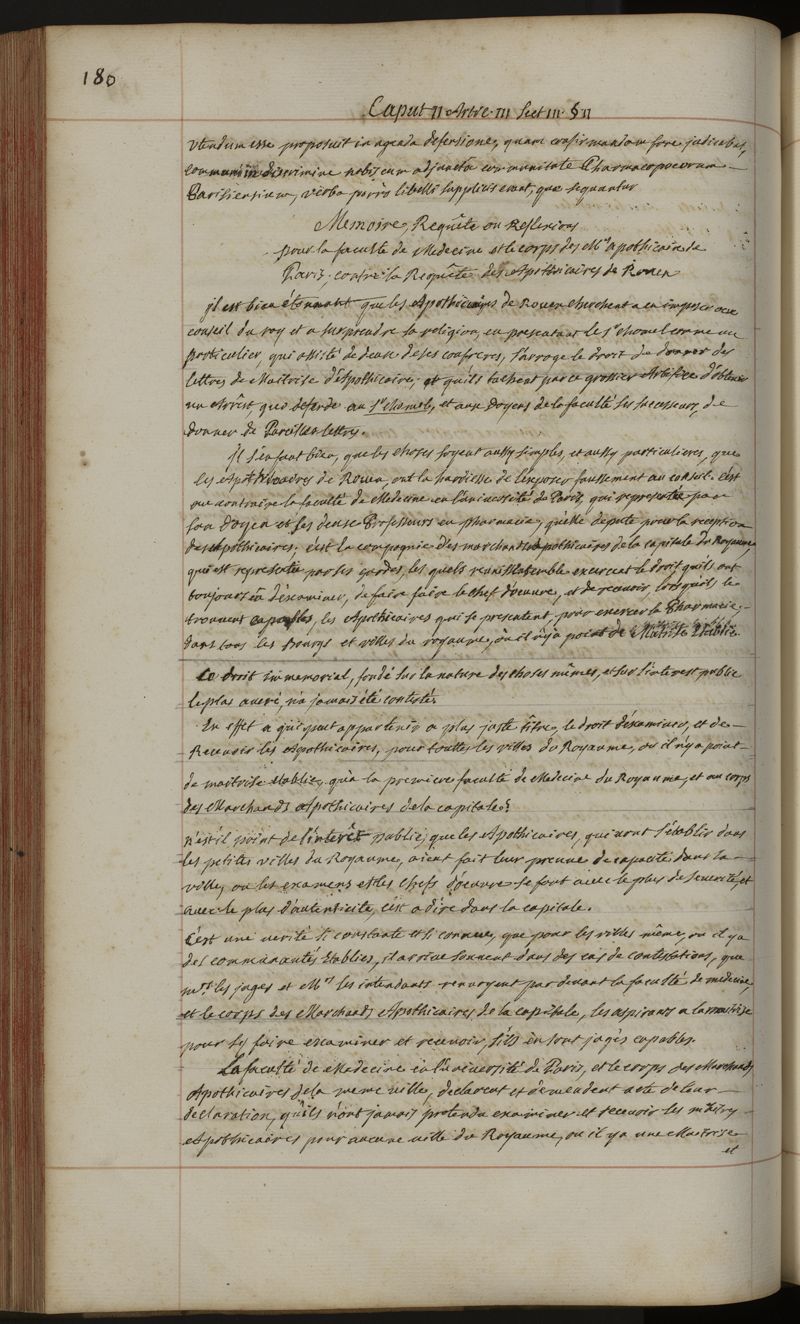 180
Caput II Artic. III Sect III. § II
utendum esse proposuit in agenda defensione, quam confirmandam fore judicabat,
communi in discrimine nobis cum adjuncta communitate Pharmacopoeorum
Parisiensium, verba porrò libelli supplicis erant, quæ sequuntur
Memoire, Requête ou Reflexions
pour la faculté de Medecine et le corps des Mrs apothicaire de
Paris, contre la Requête des Apothicaires de Rouen
jl est bien étonnant que les Apothicaires de Rouen cherchent a en imposer au
conseil du roy et a surprendre sa religion, en presentant le Sr chomel comme un
particulier, qui assisté de deux de ses confreres, s'arroge le droit de donner des
lettres de Maitrise d'Apothicaire; et qu'ils tachent par ce grossier Artifice d'obtenir
un Arrêt qui defende au Sr chomel, et aux Doyens de la faculté ses successeurs, de
donner de Pareilles lettres.
Jl s'en faut bien, que les choses soyent aussy simples, et aussy particulieres, que
les Apothicaires de Rouen, ont la hardiesse de l'exposer faussement au conseil. c'est
au contraire la faculté de Medecine en l'université de Paris, qui represente par
son Doyen et ses deux Professeurs en pharmacie, qu'elle depute pour la reception
des apothicaires; c'est la compagnie des marchands apothicaires de la capitale du Royaume,
qui est representée par ses gardes, les quels réunis ensemble exercent le droit qu'ils ont
toujours eû d'éxaminer, de faire faire le chef d'oeuvre, et de recevoir, lorsqu'ils le
trouvent capables, les Apothicaires qui se presentent, pour exercer la Pharmacie,
dans tous les Bourgs et villes du royaume, où il n'y a point de Maîtrise Etablie.
Ce droit immemorial, fondé sur la nature des choses mêmes, et sur l'interest public
le plus averé, n'a jamais été contesté.
En effet a qui peut appartenir a plus juste titre, le droit d'éxaminer, et de
Recevoir les Apothicaires, pour touttes les villes du Royaume, ou il n'y a point
de maitrise etablie, qu'a la premiere faculté de Medecine du Royaume, et au corps
des Marchands Apothicaires de la capitale?
n'est il point de l'interêt public, que les Apothicaires, qui vont s'établir dans
les petites villes du Royaume, aient fait leur preuve de capacité dans la
ville, ou les examens et les chefs d'oeuvre se font avec le plus de severité, et
avec le plus d'autenticité, c'est a dire dans la capitale.
C'est une verité si constante et si connue, que pour les villes même, ou il y a
des communautés etablies, il arrive souvent dans des cas de contestations, que
mrs les juges et Mrs les intendants renvoyent par devant la faculté de medecine,
et le corps des Marchands Apothicaires de la capitale, les aspirants a la maitrise
pour s'y faire examiner et recevoir, s'ils en sont jugés capables.
La faculté de Medecine en l'université de Paris, et le corps des Marchands
Apothicaires de la meme ville, declarent et demendent acte de leur
declaration, qu'ils n'ont jamais pretendu examiner et recevoir les maitres
Apothicaires pour aucune ville du Royaume, ou il y a une Maitrise
et